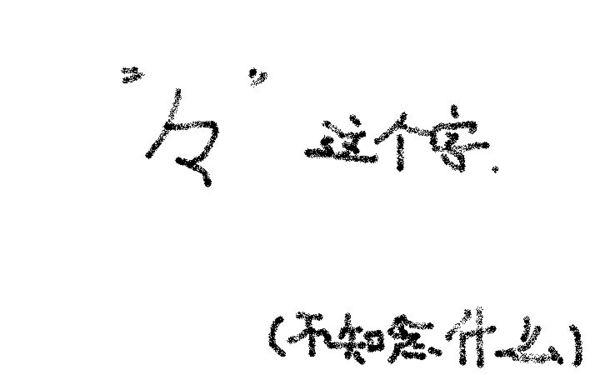 "々"这个字.
(不知念什么)